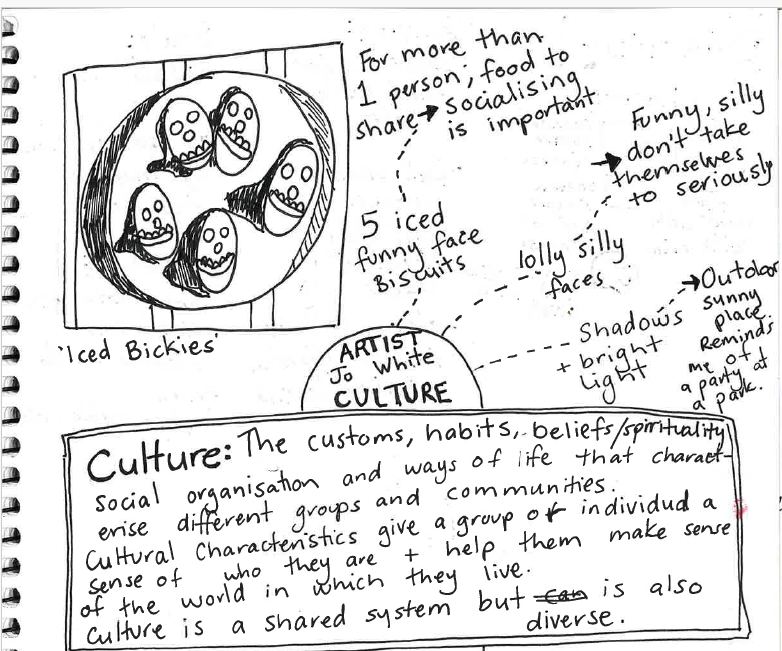 For more than
1 person, food to
share → socialising
is important
Funny, silly
don't take
themselves
to seriously
5 iced
funny face
Biscuits
lolly silly
faces
Shadows
+ bright
light
Outdoor
sunny
place.
Reminds
me of
a party at
a park.
'Iced Bickies'
ARTIST
Jo White
CULTURE
Culture: The customs, habits, beliefs/spirituality
social organisation and ways of life that charact-
erise different groups and communities.
Cultural Characteristics give a group or individual a
sense of who they are + help them make sense
of the world in which they live.
Culture is a shared system but can is also
diverse.